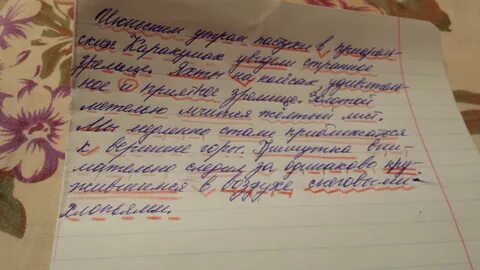 Июльским утром пастухи в приараль-
ских Каракумах увидели странное
зрелище. Яхты на колёсах, удивитель-
ное и приятное зрелище. Золотой
метелью мчится желтый лист.
Мы медленно стали приближаться
к вершине горы. Примутка вни-
мательно следил за одинаково кру-
жившимися в воздухе снеговыми
хлопьями.